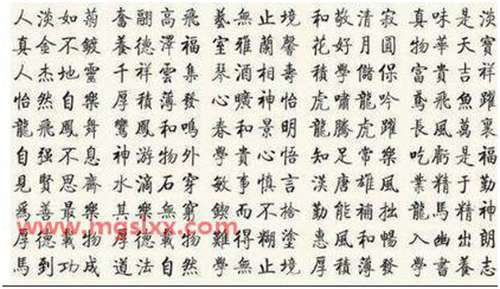 人淡如菊 奮翮高飛 藝無止境 和敬清寂 真味是淡
真金不鍍 養德澤福 室雅蘭馨 花好月圓 物華天寶
人杰地靈 千祥雲集 琴酒相壽 積學儲 富貴吉祥
怡然自樂 厚積薄發 心曠神怡 虎嘯龍吟 鳶飛魚躍
龍飛鳳舞 鸞鳳和鳴 春和景明 龍騰虎躍 長風萬裏
自强不息 神游物外 學貴心悟 知足常樂 吃虧是福
見賢思齊 水滴石穿 敏事慎言 漢唐雄風 業精于勤
爲善最樂 其樂無窮 鍥而不捨 勤能補拙 龍馬精神
www.mgslxx.com
厚德載物 載物 難得糊塗 惠風和暢 入幽出朗
馬到功成 道法自然 學無止境 厚積薄發 學書養志